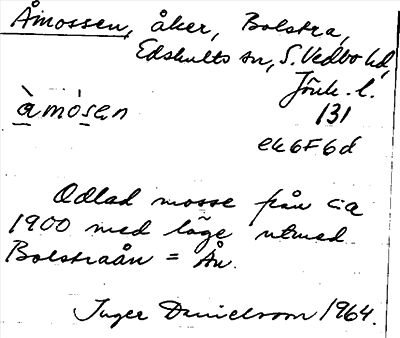 Åmossen, åker, Bolstra,
Edshults sn, S. Vedbo hd,
Jönk. l.
131
àmòsen
ek6F6d
Odlad mosse från ca
1900 med läge utmed
Bolstraån = Ån.
Inger Danielsson 1964.